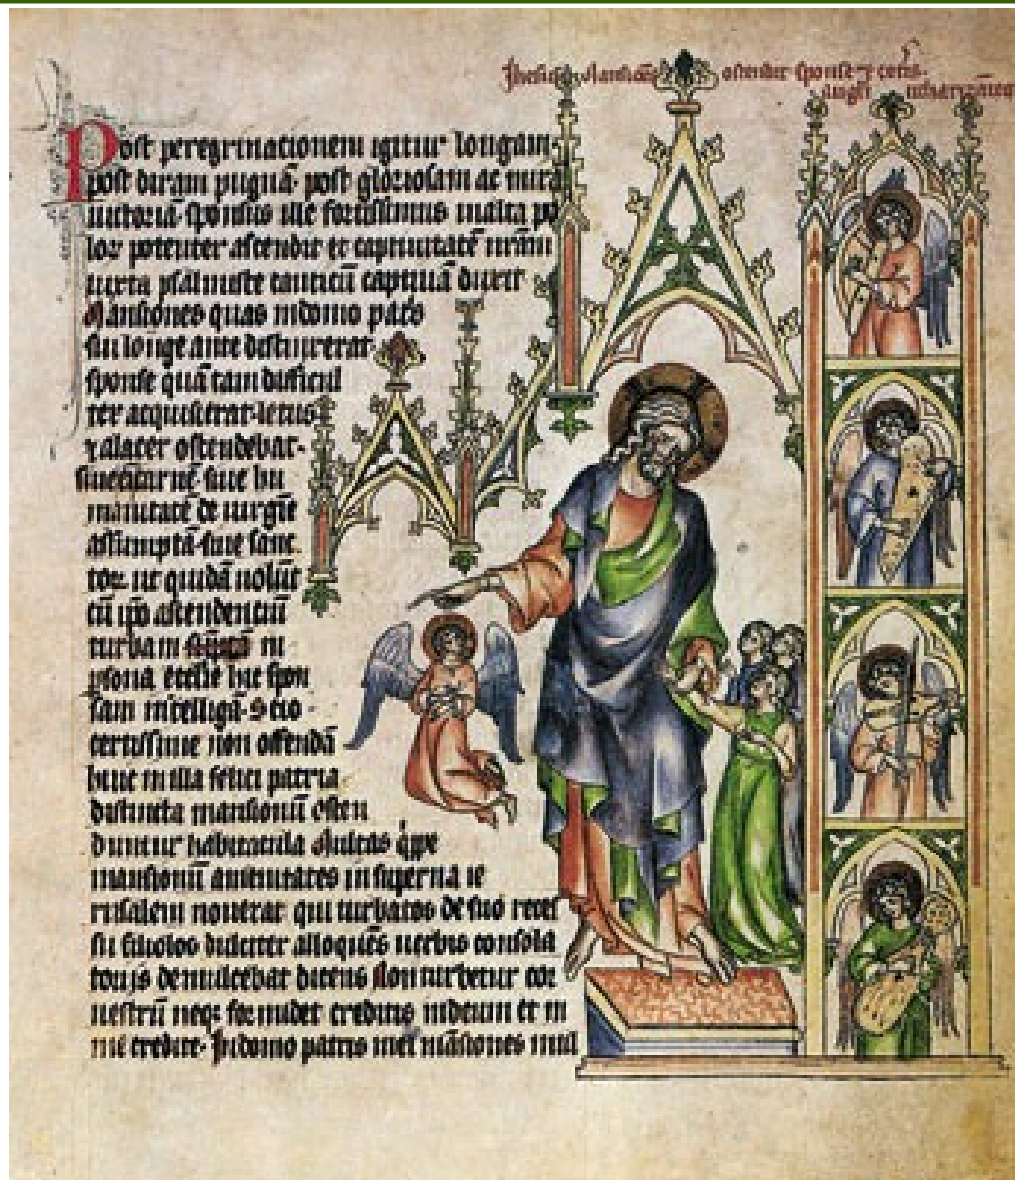 ostendit sponse et
angeli
Post peregrinationem igitur longam.
post diram pugnā. post gloriosam ac mirā
uictoriā. sponsus ille fortissimus malta po
lor potenter ascendit et captiuitatē nr̄am
iuxta psalmiste canticū captiuā duxit
Mansiones quas in domo patris
sui longe ante distinxerat
sponse quā tam difficul
ter acquisierat. letus
et alacer ostendebat.
siue eterne siue hu
manitatē de uirgīe
assumptā. siue sanc
tor. ut quidā uolūt
cū ipo ascendentiū
turbam in
psona ecclesie hic spon
sam intelligā. Scio
certissime non offendā
hiic in illa felici patria
distincta mansionū osten
duntur habitacula Multas qipe
mansionū amenitates in superna ie
rusalem nouerat qui turbatos de suo reces
su filiolos dulciter alloquēs uerbis consola
torijs demulcebat dicens Non turbetur cor
uestrū neqꝫ formidet creditis in deum et in
me credite. In domo patris mei māsiones mul